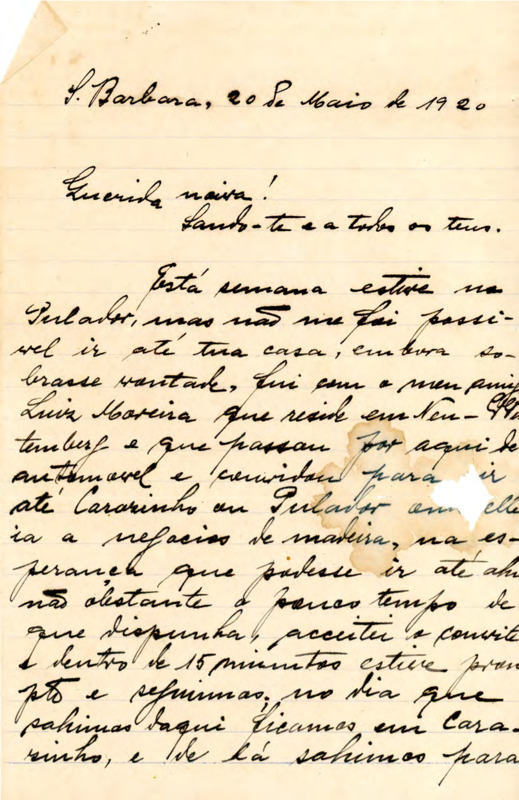 S. Barbara, 20 de Maio de 1920
Querida noiva!
Saudo-te e a todos os teus.
Está semana estive no
Pulador, mas não me foi possi-
vel ir até tua casa, embora so-
brasse vontade, fui com o meu amigo
Luiz Moreira que reside em Neu-
temberg e que passou por aqui de
automovel e convidou para ir
até Cararinho ou Pulador onde elle
ia a negocios de madeira, na es-
perança que podesse ir até ahi
não obstante o pouco tempo de
que dispunha, acceitei o convite
e dentro de 15 minutos estive prom
pto e seguimos, no dia que
sahimos daqui ficamos em Cara-
sinho, e de lá sahimos para